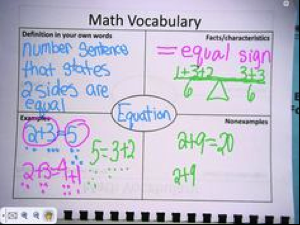 Math Vocabulary
Definition in your own words
number sentence
that states
2 sides are
equal
Facts/characteristics
= equal sign
1+3+2 3+3
6 6
Equation
Examples
2+3=5
2+3=4+1
5=3+2
Nonexamples
2+9=20
2+9